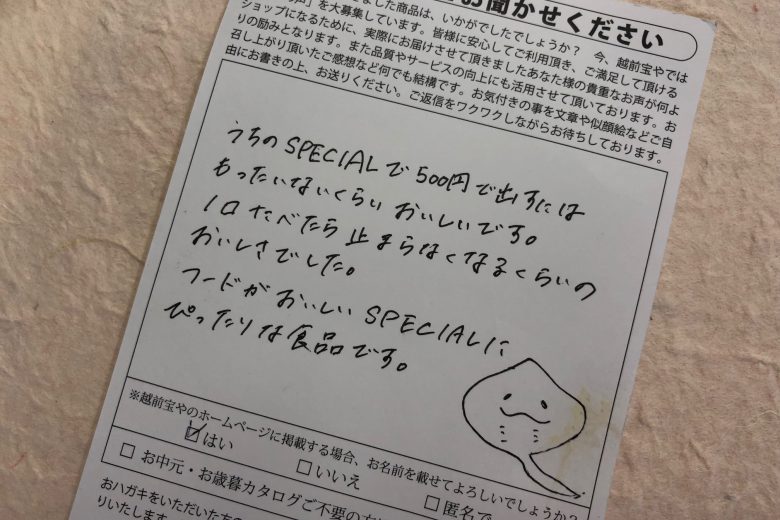 お聞かせください
ました商品は、いかがでしたでしょうか？　今、越前宝やでは
を大募集しています。皆様に安心してご利用頂き、ご満足して頂ける
ショップになるために、実際にお届けさせて頂きましたあなた様の貴重なお声が何よ
りの励みとなります。また品質やサービスの向上にも活用させて頂いております。お
召し上がり頂いたご感想など何でも結構です。お気付きの事を文章や似顔絵などご自
由にお書きの上、お送りください。ご返信をワクワクしながらお待ちしております。
うちのSPECIALで500円で出すには
もったいないくらいおいしいです。
1口たべたら止まらなくなるくらいの
おいしさでした。
フードがおいしいSPECIALに
ぴったりな食品です。
※越前宝やのホームページに掲載する場合、お名前を載せてよろしいでしょうか？
☑はい　□いいえ　□匿名で
□ お中元・お歳暮カタログご不要の方
おハガキをいただいた方の
りいたします。